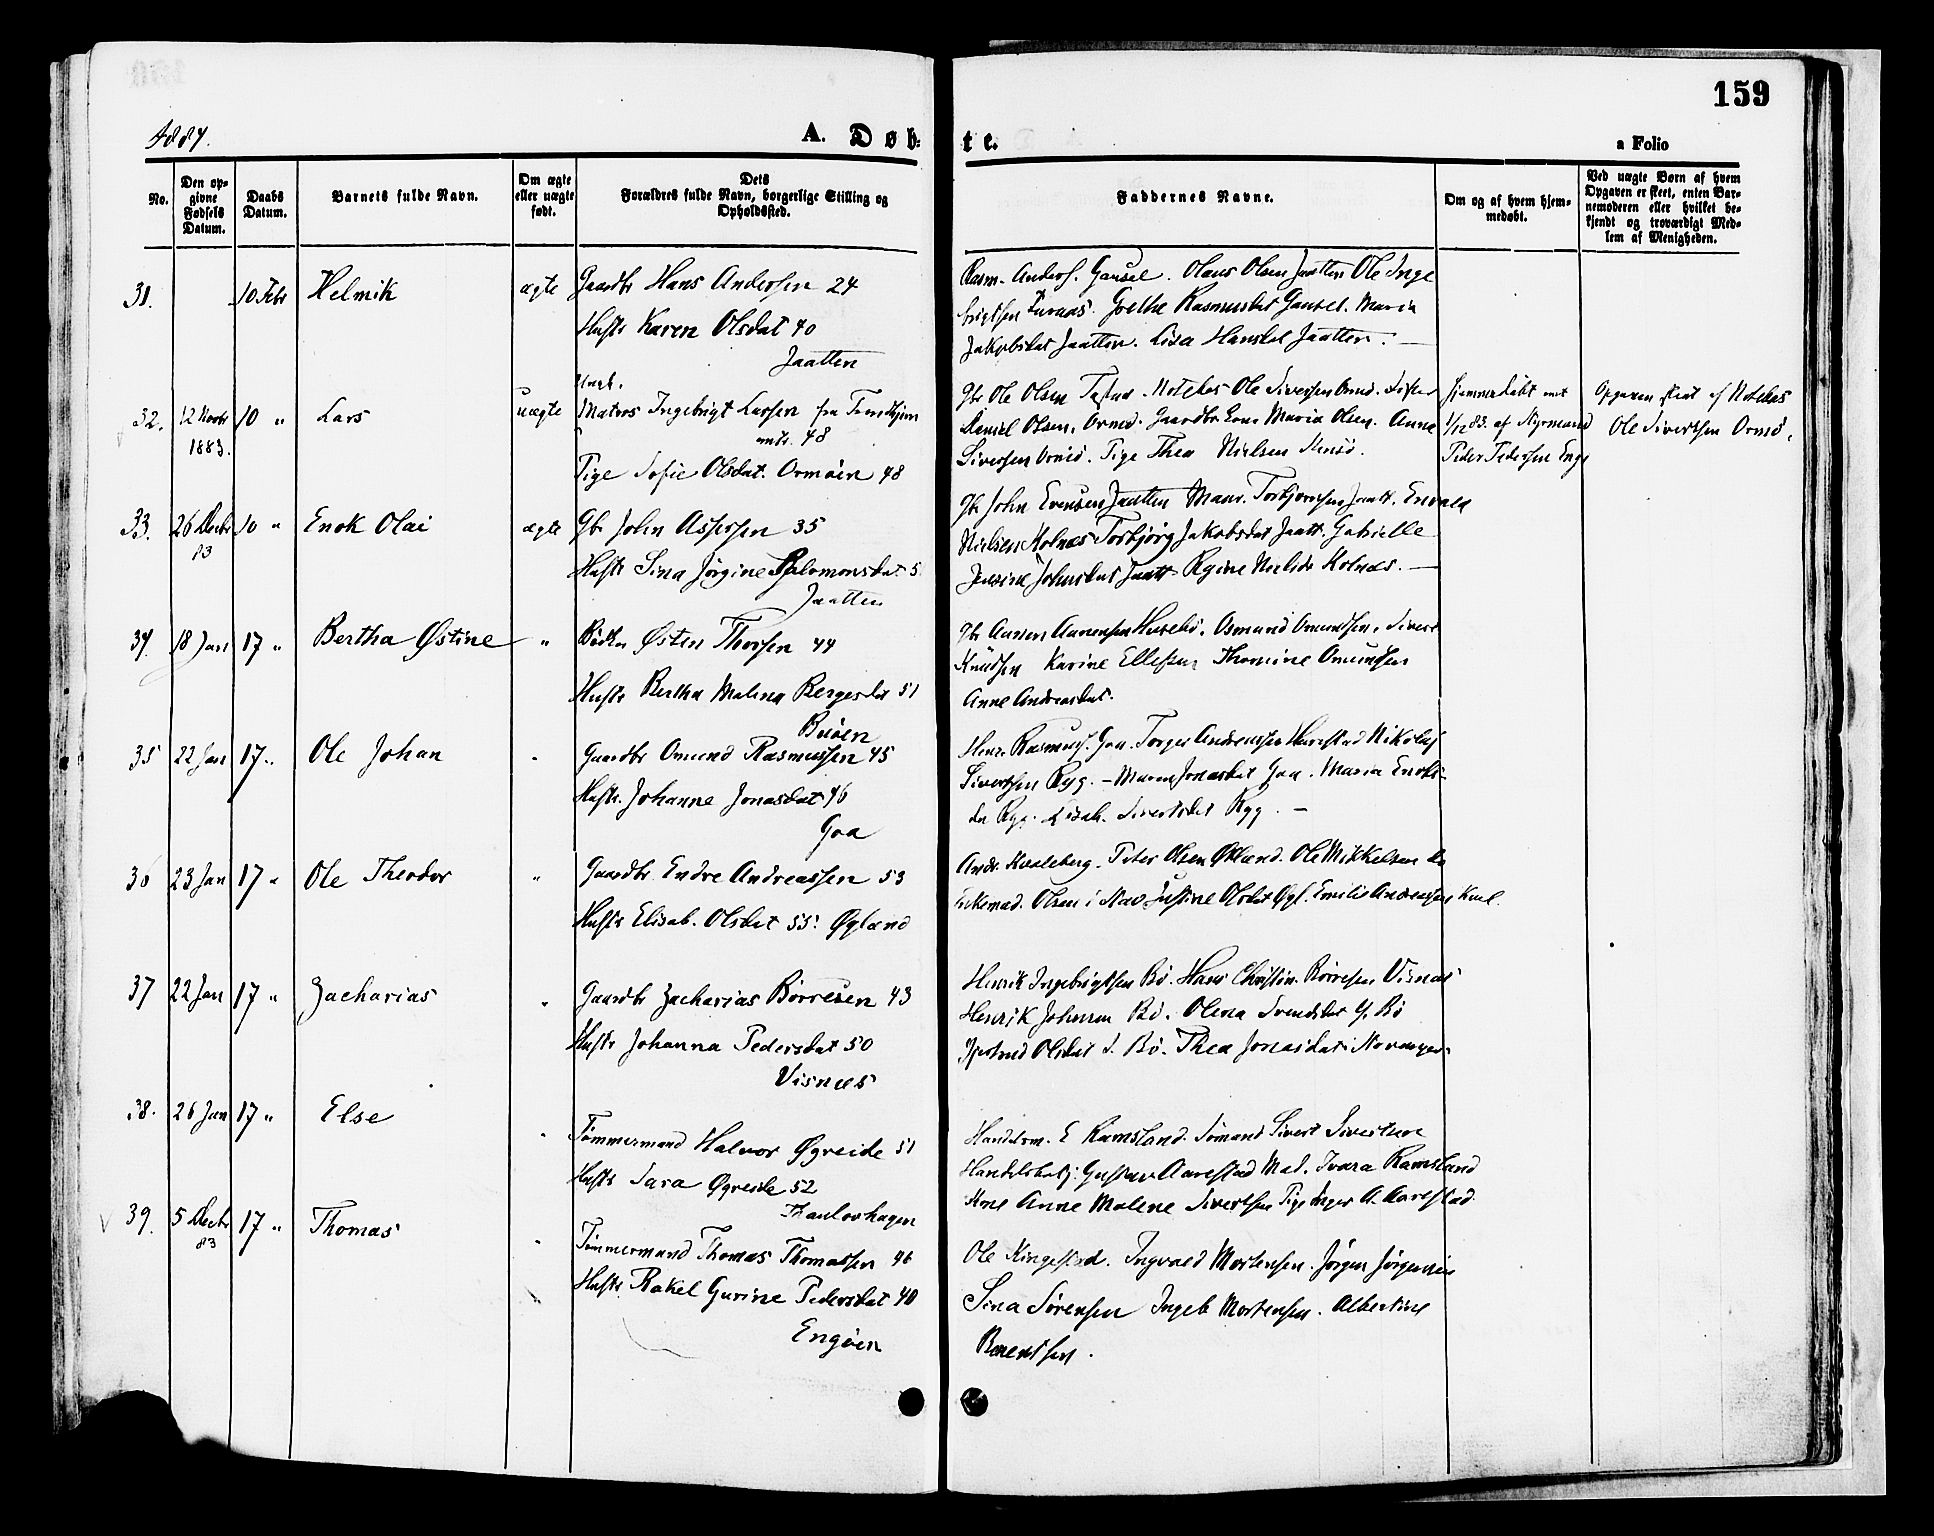 159
1884.
A. Døb-
te.
a Folio
No.
Den op-
givne
Fødsels
Datum.
Daabs
Datum.
Barnets fulde Navn.
Om ægte
eller uægte
født.
Dets
Forældres fulde Navn, borgerlige Stilling og
Opholdssted.
Faddernes Navne.
Om og af hvem hjem-
medøbt.
Ved uægte Børn af hvem
Opgaven er skeet, enten Bar-
nemoderen eller hvilket be-
kjendt og troværdigt Med-
lem af Menigheden.
31. 10 Febr Helmik ægte Gaardbr Hans Andersen 24
Hustr Karen Olsdat 40
Jaatten
Rasm. Anders. Gausel. Olaus Olsen Jaatten Ole Inge
brigtsen. Goethe Rasmusdat Gausel. Maria
Jakobsdat Jaatten. Lisa Hansdat Jaatten. —
32. 12 Novbr 10 " Lars uægte
1883.
Ungk.
Matros Ingebrigt Larsen fra Trondhjem
amt. 48
Pige Sofie Olsdat. Ormøen 48
Gbr Ole Olsen Tastad. Notebas Ole Siversen Ormø.
Daniel Olsen, Ormø. Gaardbr Kone Maria Olsen. Anne
Siversen Ormø. Pige Thea Nielsen
Hjemmedøbt
1/12 83. af Styrmand
Peder Pedersen Enge
Opgaven skeet af Notebas
Ole Sivertsen Ormø.
33. 26 Decbr 10 " Enok Olai ægte Gbr John Aspersen 35
83
Hustr Sina Jørgine Salomonsdat 5
Jaatten
Gbr John Evensen Jaatten Maur. Torbjørnsen Jaatt. Envald
Nielsen Kolnæs Torbjørg Jakobsdat Jaatt. Gabrielle
Johnsdat Jaatt Rgine Nielsd. Kolnæs. —
34. 18 Jan 17 " Bertha Østine " Bødker Østen Thorsen 44
Hustr Bertha Malena Bergesdat 51
Buøen
Gbr Aanen Aanensen Husebø. Osmund Omundsen. Sivert
Knudsen Karine Ellefsen Thomine Omundsen
Anne Andreasdat.
35 22 Jan 17 " Ole Johan " Gaardbr Omund Rasmussen 45
Hustr. Johanne Jonasdat 46
Goa
Henr. Rasmus. Goa. Torger Andreassen Harestad Nikolaj
Sivertsen Ryg. — Maren Jonasdat Goa. Maria Enoks-
da Ryg. Elisab. Sivertsdat Ryg. —
36 23 Jan 17 " Ole Theodor " Gaardbr Endre Andreassen 53
Hustr Elisab. Olsdat 55. Øgland
Andr. Kvaleberg. Peter Olsen Øgland. Ole Mikkelsen do
Enkemad. Olsen i Stav Justine Olsdat Øgl. Emilie Andreasen Kval.
37 22 Jan 17 " Zacharias " Gaardbr Zacharias Børresen 43
Hustr Johanna Pedersdat 50
Visnæs
Henrik Ingebrigtsen Bø. Hans Christin. Børresen Visnæs
Henrik Johnsen Bø. Olena Svendsdat G. Bø
Gjertrud Olsdat d. Bø. Thea Jonasdat
38. 26 Jan 17 " Else " Tømmermand Halvor Øgreide 51
Hustr Sara Øgreide 52
Thaulovhagen
Handelsm. E Ramsland. Sømand Sivert Sivertsen
Handelsbetj. Gustav Aarestad Mad. Tvara Ramsland
Kone Anne Malene Sivertsen Pige Inger A. Aarestad.
39. 5 Decbr 17 " Thomas " Tømmermand Thomas Thomassen 46
83
Hustr. Rakel Gurine Pedersdat 40
Engøen
Ole Ringestad. Ingvald Mortensen. Jørgen Jørgensen
Sina Sørensen Ingeb Mortensen. Albertine
Berentsen.